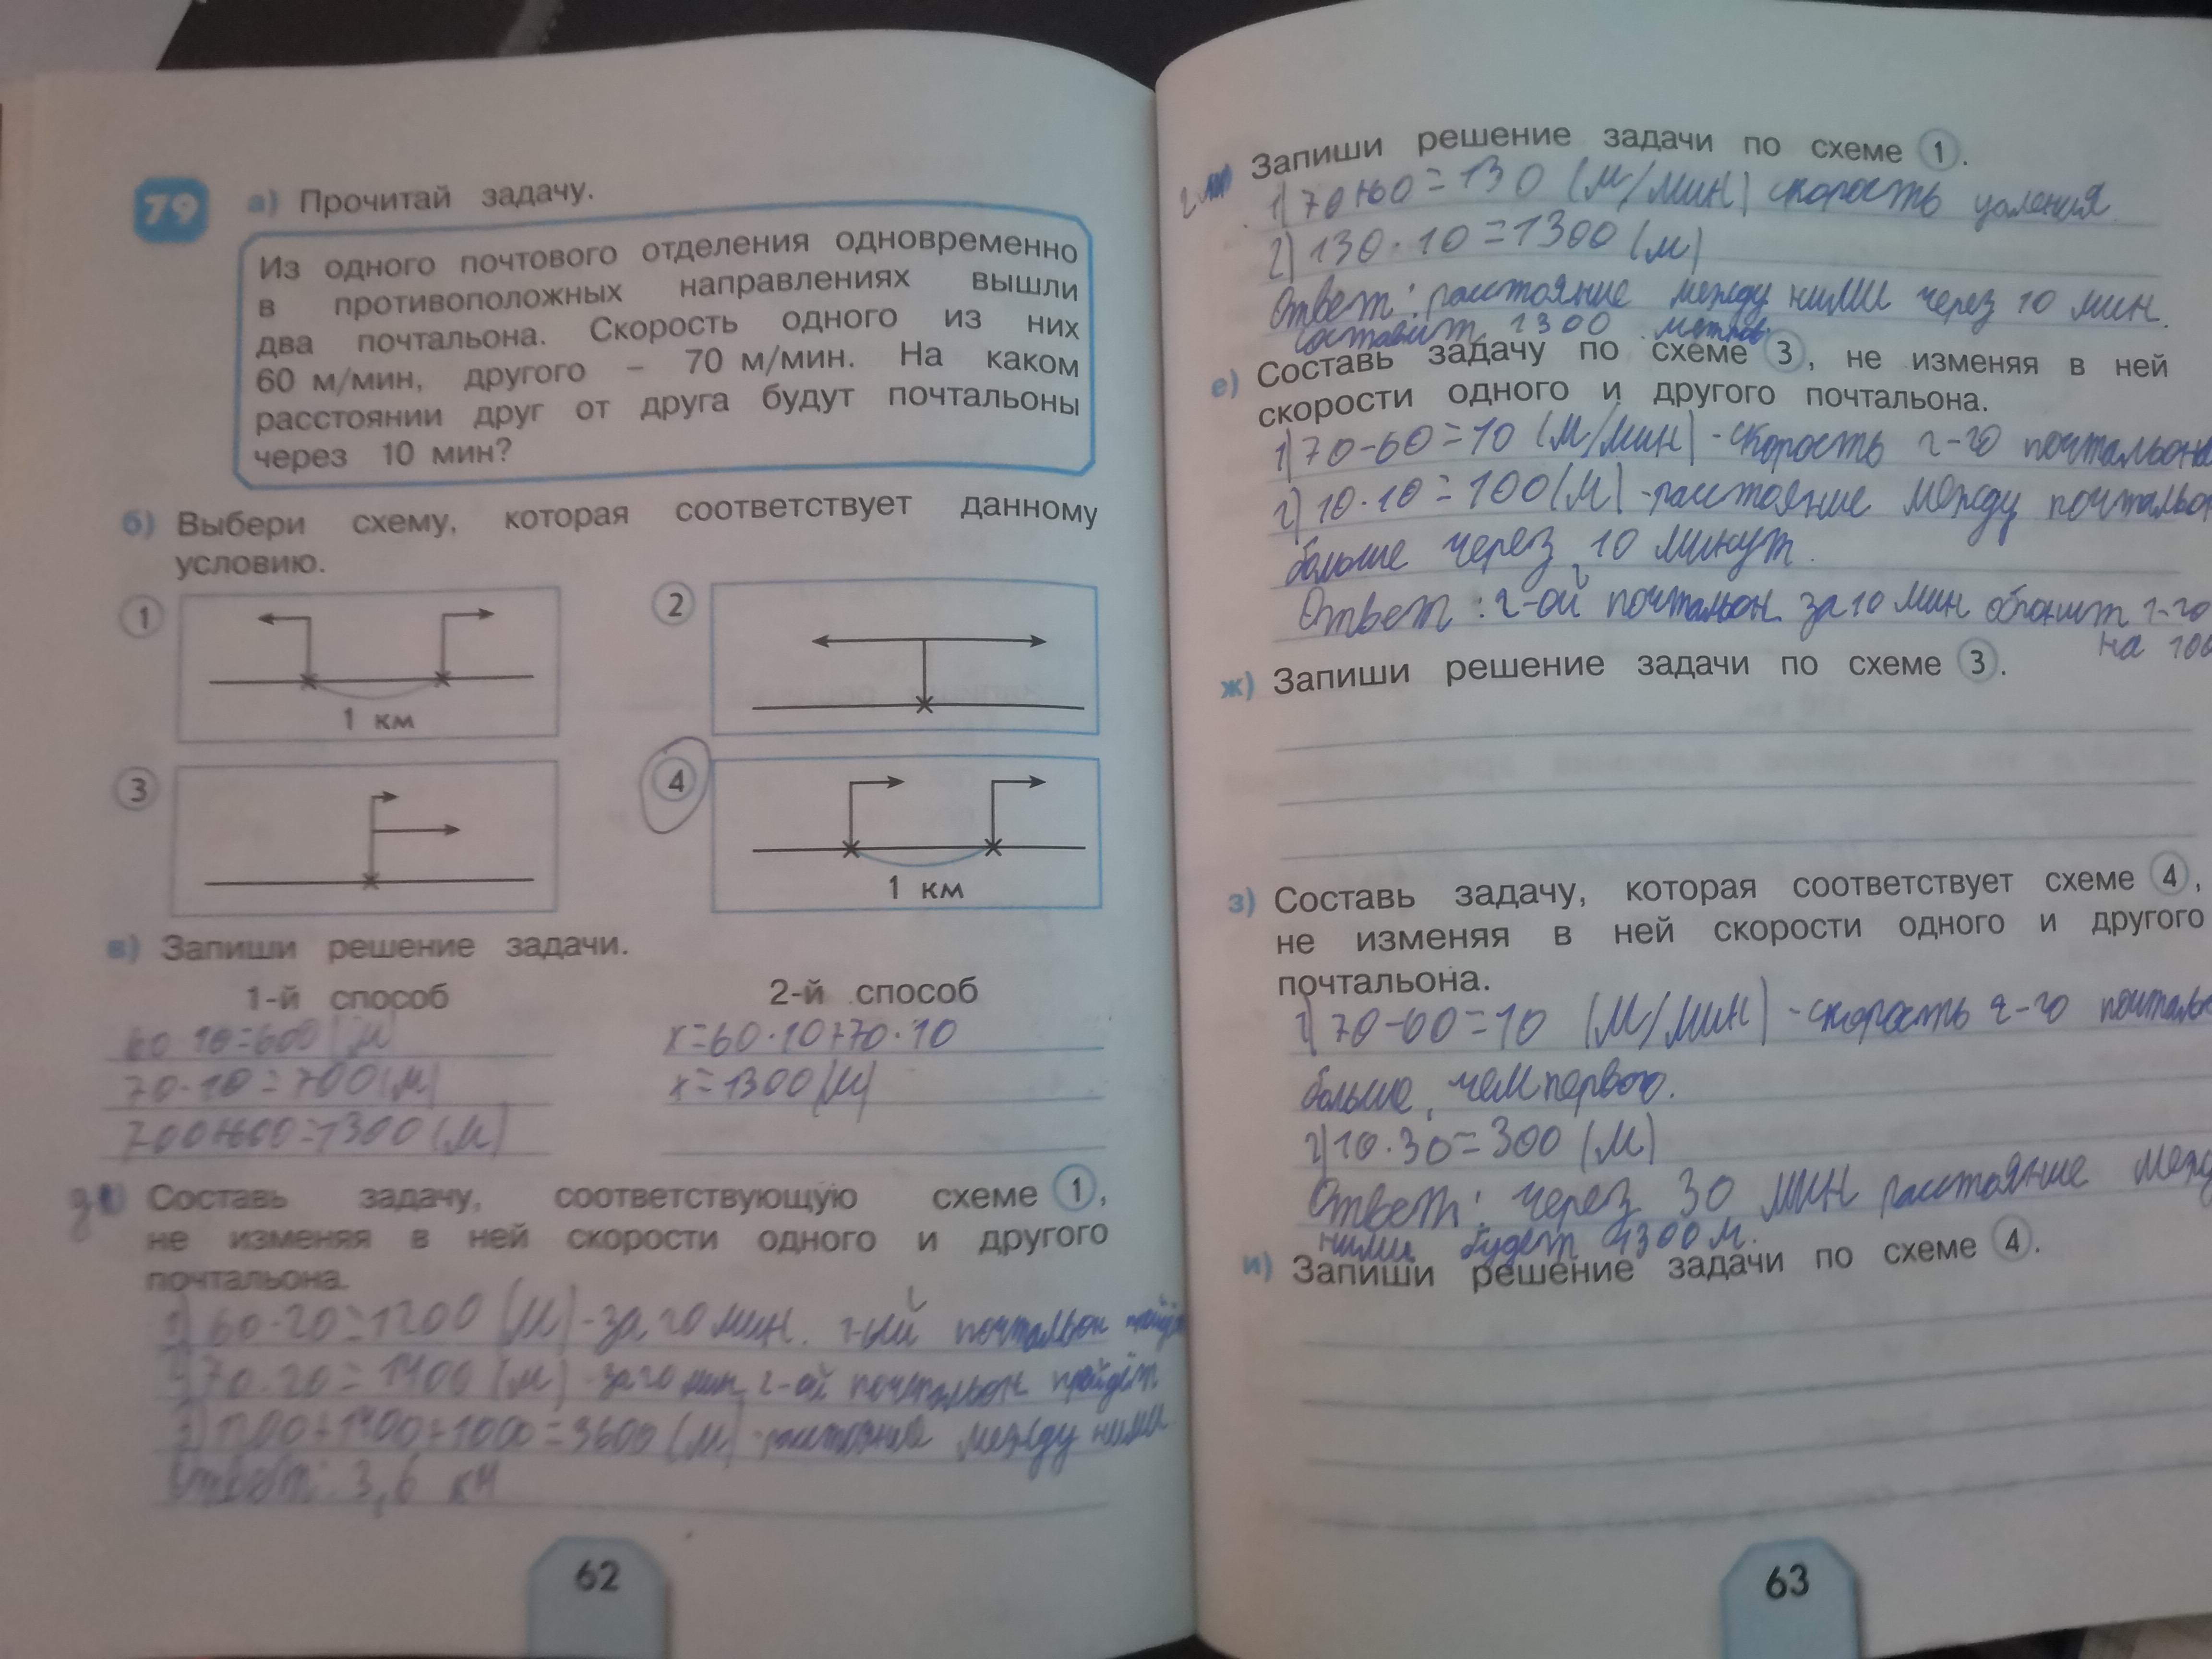 79 а) Прочитай задачу.
Из одного почтового отделения одновременно
в противоположных направлениях вышли
два почтальона. Скорость одного из них
60 м/мин, другого – 70 м/мин. На каком
расстоянии друг от друга будут почтальоны
через 10 мин?
б) Выбери схему, которая соответствует данному
условию.
1
1 км
2
3
4
1 км
в) Запиши решение задачи.
1-й способ
60 10=600(м)
70·10=700(м)
700+600=1300(м)
2-й способ
x=60·10+70·10
x=1300(м)
Составь задачу, соответствующую схеме 1,
не изменяя в ней скорости одного и другого
почтальона.
1) 60·20=1200 (м) - за 20 мин. 1-ый почтальон
2) 70·20=1400 (м) - за 20 мин 2-ой почтальон пройдёт.
3) 1200+1400+1000=3600 (м) - расстояние между ними
Ответ: 3,6 км
62
Запиши решение задачи по схеме 1.
1) 70+60=130 (м/мин) скорость
2) 130·10=1300 (м)
Ответ: расстояние между ними через 10 мин.
составит 1300 метров.
е) Составь задачу по схеме 3, не изменяя в ней
скорости одного и другого почтальона.
1) 70-60=10 (м/мин) - скорость 2-го почтальона
2) 10·10=100(м) - расстояние между почтальон
больше через 10 минут.
Ответ: 2-ой почтальон за 10 мин обгонит 1-го
на 100
ж) Запиши решение задачи по схеме 3.
з) Составь задачу, которая соответствует схеме 4,
не изменяя в ней скорости одного и другого
почтальона.
1) 70-60=10 (м/мин) - скорость 2-го почтальо
больше, чем первого.
2) 10·30=300 (м)
Ответ: через 30 мин расстояние между
ними будет 1300 м.
и) Запиши решение задачи по схеме 4.
63